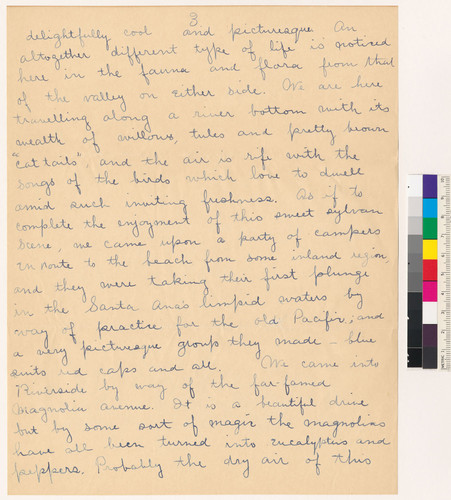 3
delightfully cool and picturesque. An
altogether different type of life is noticed
here in the fauna and flora from that
of the valley on either side. We are here
travelling along a river bottom with its
wealth of willows, tules and pretty brown
"cat tails", and the air is rife with the
songs of the birds which love to dwell
amid such inviting freshness. As if to
complete the enjoyment of this sweet sylvan
scene, we came upon a party of campers
en route to the beach from some inland region,
and they were taking their first plunge
in the Santa Ana's limpid waters by
way of practice for the old Pacific; and
a very picturesque group they made – blue
suits red caps and all. We came into
Riverside by way of the far-famed
Magnolia avenue. It is a beautiful drive
but by some sort of magic the magnolias
have all been turned into eucalyptus and
peppers. Probably the dry air of this